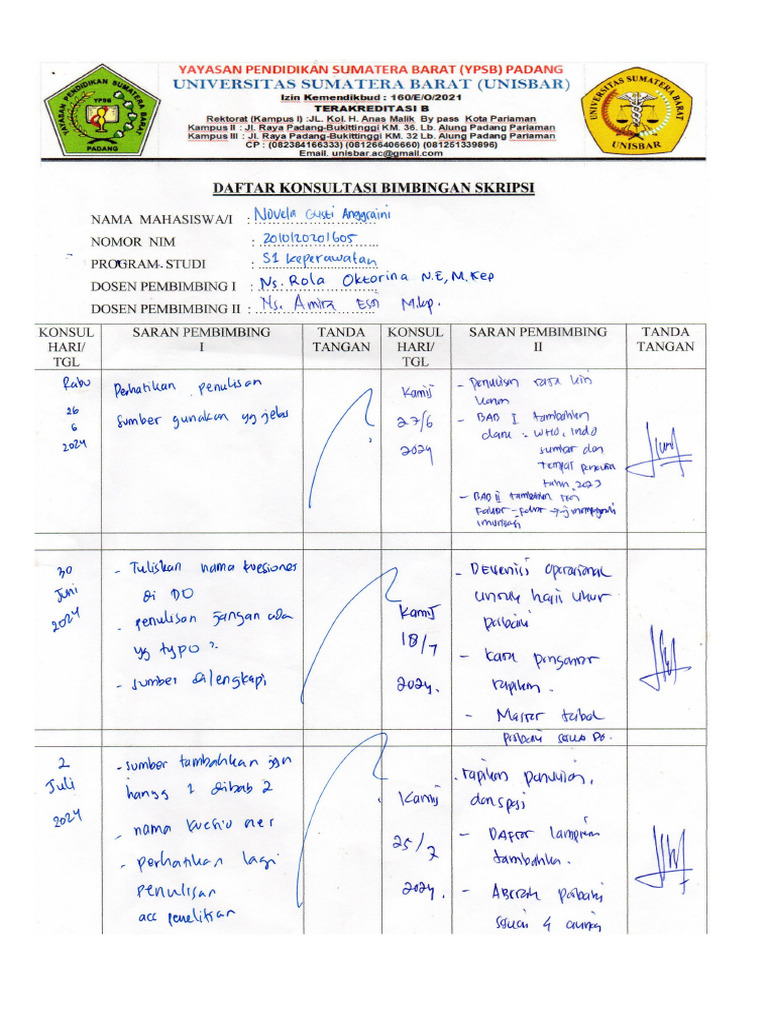 YAYASAN PENDIDIKAN SUMATERA BARAT (YPSB) PADANG
UNIVERSITAS SUMATERA BARAT (UNISBAR)
Izin Kemendikbud : 160/E/O/2021
TERAKREDITASI B
Rektorat (Kampus I) :JL. Kol. H. Anas Malik By pass Kota Pariaman
Kampus II : Jl. Raya Padang-Bukittinggi KM. 36. Lb. Alung Padang Pariaman
Kampus III : Jl. Raya Padang-Bukittinggi KM. 32 Lb. Alung Padang Pariaman
CP : (082384166333) (081266406660) (081251339896)
Email. unisbar.ac@gmail.com
YAYASAN PENDIDIKAN SUMATERA BARAT
YPSB
PADANG
UNIVERSITAS SUMATERA BARAT
UNISBAR
DAFTAR KONSULTASI BIMBINGAN SKRIPSI
NAMA MAHASISWA/I : Novela Gusti Anggraini
NOMOR NIM : 2010120201605
PROGRAM STUDI : S1 Keperawatan
DOSEN PEMBIMBING I : Ns. Rola Oktorina N.E, M.Kep
DOSEN PEMBIMBING II : Ns. Amira Esti M.kp.
KONSUL HARI/ TGL
SARAN PEMBIMBING I
TANDA TANGAN
KONSUL HARI/ TGL
SARAN PEMBIMBING II
TANDA TANGAN
Rabu
26
6
2024
Perhatikan penulisan
sumber gunakan yg jelas
Kamis
27/6
2024
- Penulisan rata kiri
kanan
- BAB I tambahkan
data : WHO, Indo
sumbar dan
tempat
tahun 2023
- BAB II tambahkan
Faktor-faktor
imunisasi
30
Juni
2024
- Tuliskan nama kuesioner
di DO
- penulisan jangan ada
yg typo
- sumber dilengkapi
Kamis
18/7
2024.
- Defenisi operasional
untuk hasil ukur
perbaiki
- kata pengantar
rapikan.
- Master tabel
perbaiki sesuai DO.
2
Juli
2024
- sumber tambahkan jgn
hanya 1 dibab 2
- nama kuesioner
- perhatikan lagi
penulisan
acc penelitian
Kamis
25/7
2024.
- rapikan penulisan,
dan spasi
- Daftar lampiran
tambahkan.
- Abstrak perbaiki
sesuai